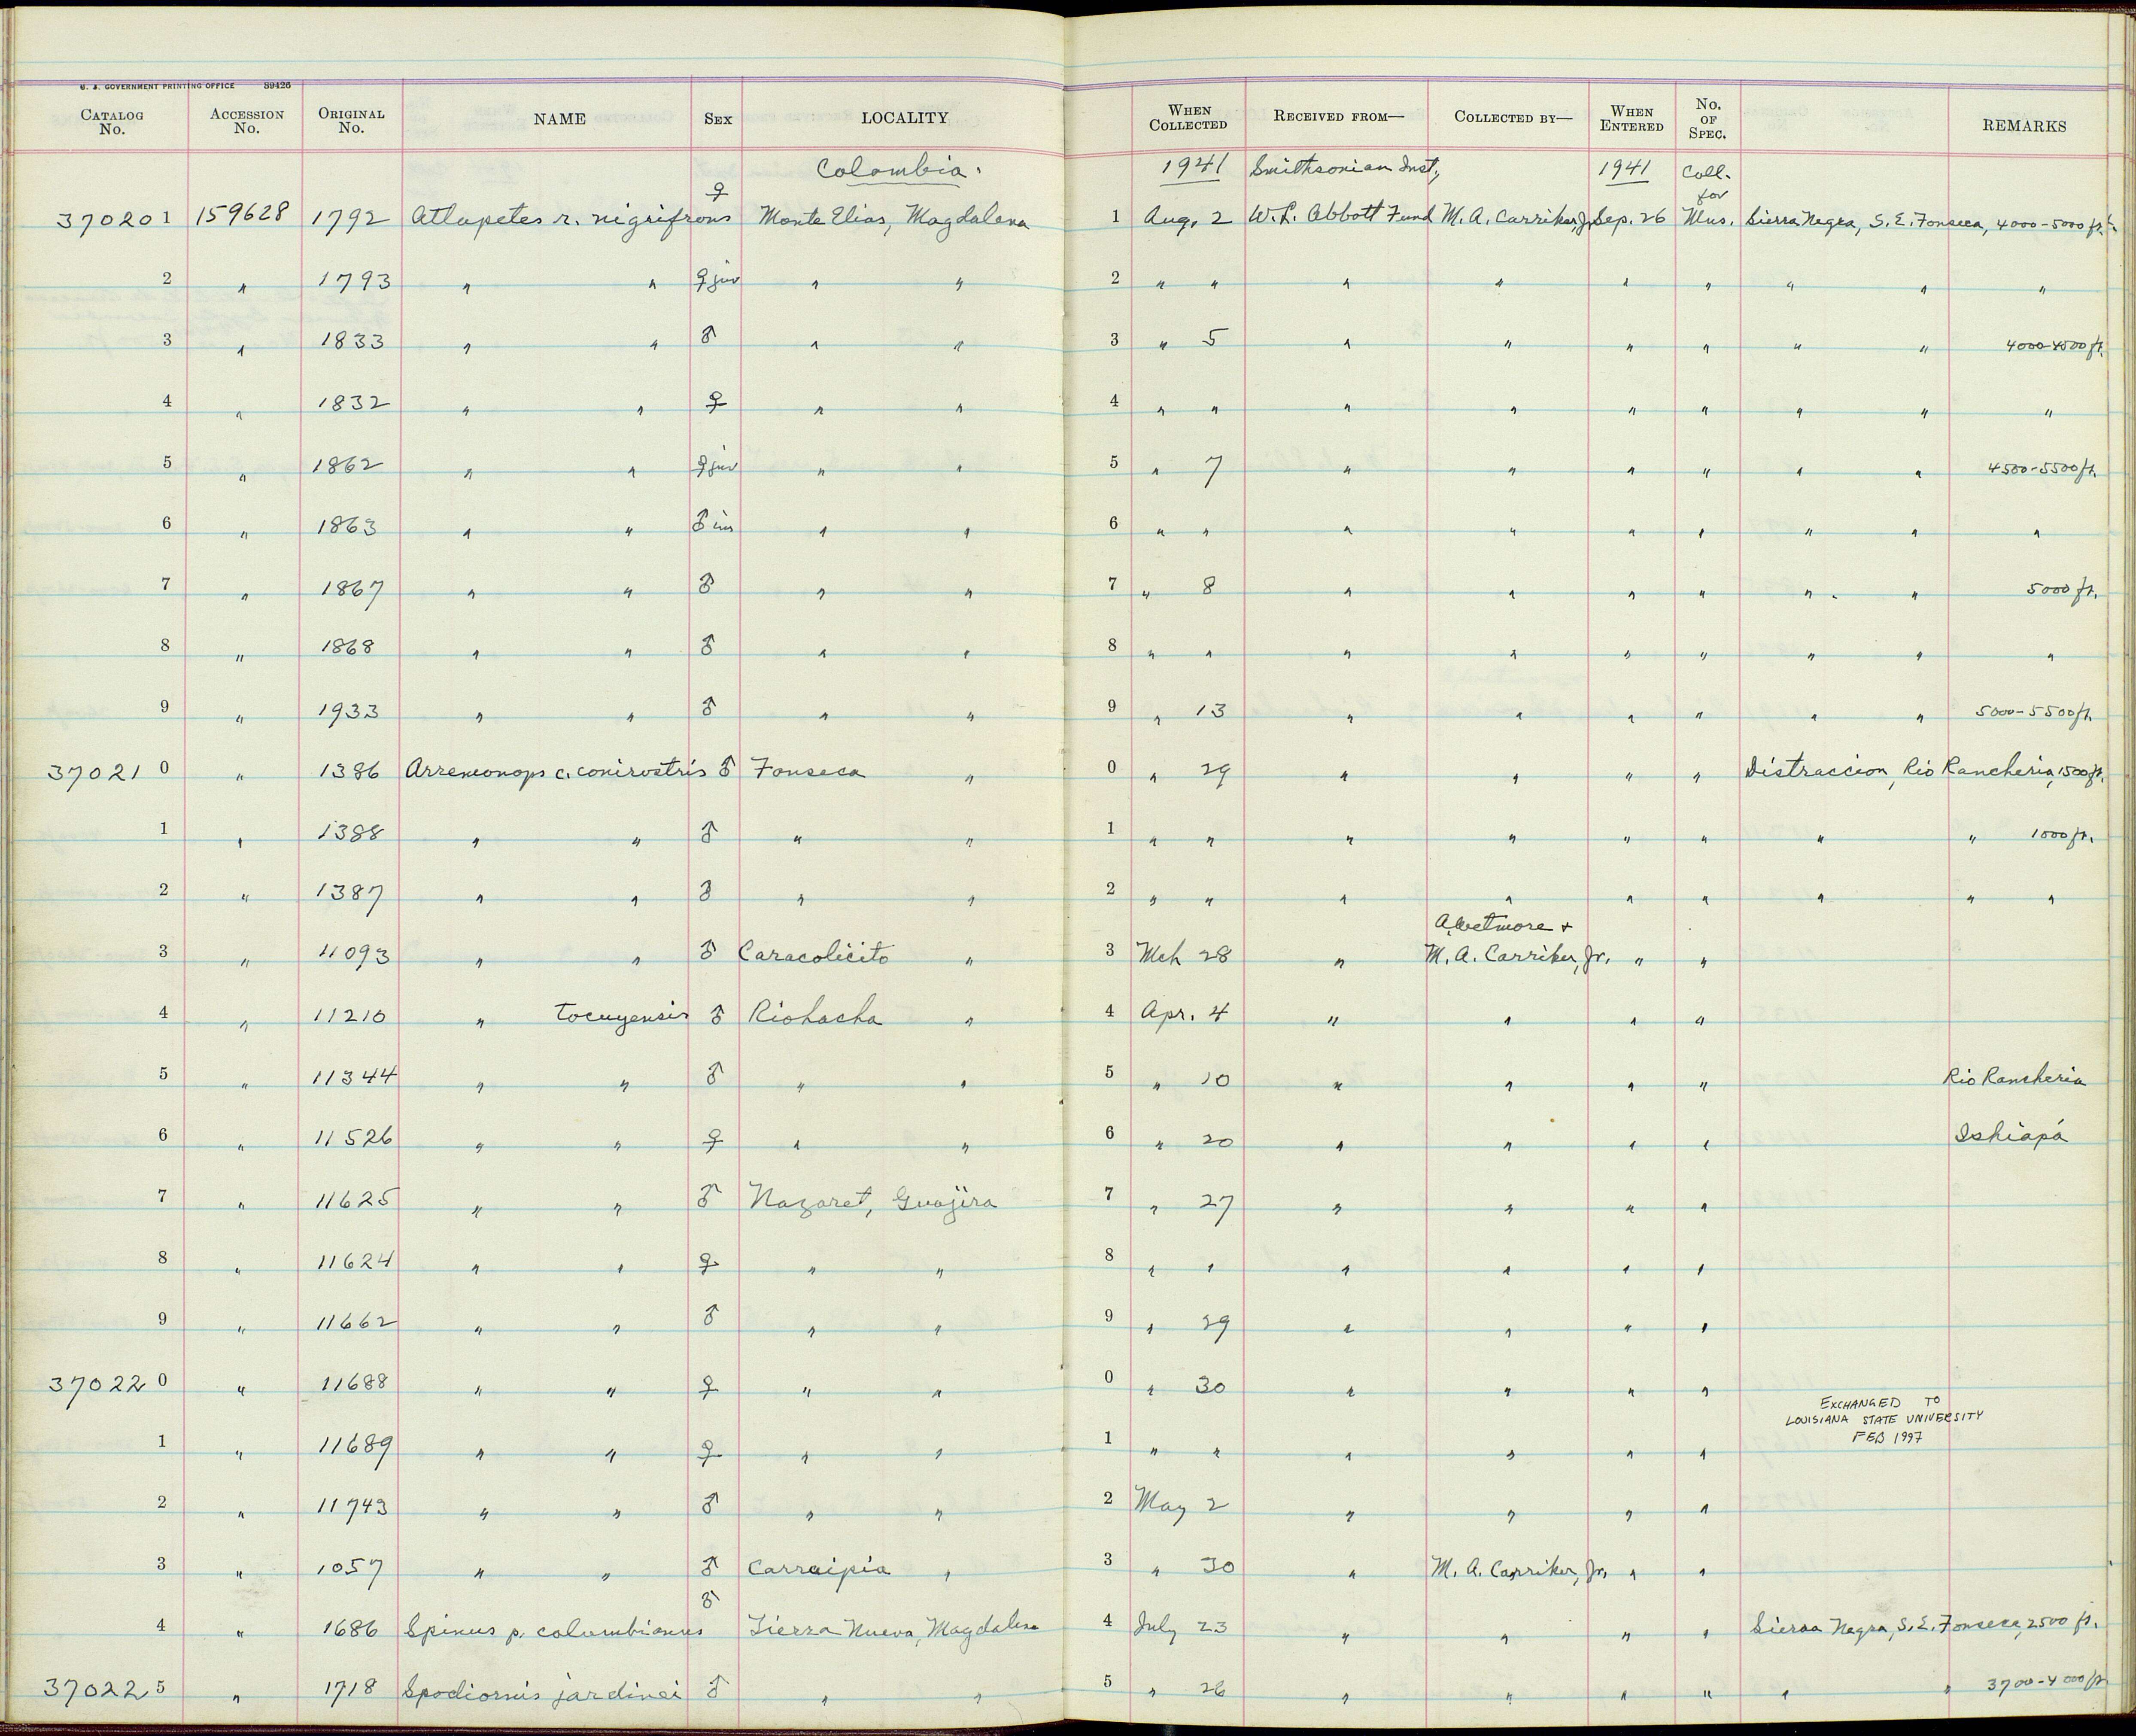 U. S. GOVERNMENT PRINTING OFFICE 89426
CATALOG No. ACCESSION No. ORIGINAL No. NAME SEX LOCALITY WHEN COLLECTED RECEIVED FROM— COLLECTED BY— WHEN ENTERED No. OF SPEC. REMARKS
Colombia. 1941 Smithsonian Inst., 1941 Coll. for
370201 159628 1792 Atlapetes r. nigrifrons ♀ Monte Elias, Magdalena 1 Aug. 2 W. L. Abbott Fund M. A. Carriker, Jr. Sep. 26 Mus. Sierra Negra, S. E. Fonseca, 4000-5000 ft.
2 " 1793 " " ♀ juv " " 2 " " " " " " " " "
3 " 1833 " " ♂ " " 3 " 5 " " " " " " 4000-4500 ft.
4 " 1832 " " ♀ " " 4 " " " " " " " " "
5 " 1862 " " ♀ juv " " 5 " 7 " " " " " " 4500-5500 ft.
6 " 1863 " " ♂ im " " 6 " " " " " " " " "
7 " 1867 " " ♂ " " 7 " 8 " " " " " " 5000 ft.
8 " 1868 " " ♂ " " 8 " " " " " " " " "
9 " 1933 " " ♂ " " 9 " 13 " " " " " " 5000-5500 ft.
370210 " 1386 Arremonops c. conirostris ♂ Fonseca " 0 " 29 " " " " Distraccion, Rio Rancheria, 1500 ft.
1 " 1388 " " ♂ " " 1 " " " " " " " " 1000 ft.
2 " 1387 " " ♂ " " 2 " " " " " " " " "
A. Wetmore +
3 " 11093 " " ♂ Caracolicito " 3 Mch 28 " M. A. Carriker, Jr. " "
4 " 11210 " tocuyensis ♂ Riohacha " 4 Apr. 4 " " " "
5 " 11344 " " ♂ " " 5 " 10 " " " " Rio Rancheria
6 " 11526 " " ♀ " " 6 " 20 " " " " Ishiapá
7 " 11625 " " ♂ Nazaret, Guajira 7 " 27 " " " "
8 " 11624 " " ♀ " " 8 " " " " " "
9 " 11662 " " ♂ " " 9 " 29 " " " "
370220 " 11688 " " ♀ " " 0 " 30 " " " "
EXCHANGED TO
LOUISIANA STATE UNIVERSITY
FEB 1997
1 " 11689 " " ♀ " " 1 " " " " " "
2 " 11743 " " ♂ " " 2 May 2 " " " "
3 " 1057 " " ♂ Carraipia " 3 " 30 " M. A. Carriker, Jr. " "
4 " 1686 Spinus p. columbianus ♂ Tierra Nueva, Magdalena 4 July 23 " " " " Sierra Negra, S. E. Fonseca, 2500 ft.
370225 " 1718 Spodiornis jardinei ♂ " " 5 " 26 " " " " " " 3700-4000 ft